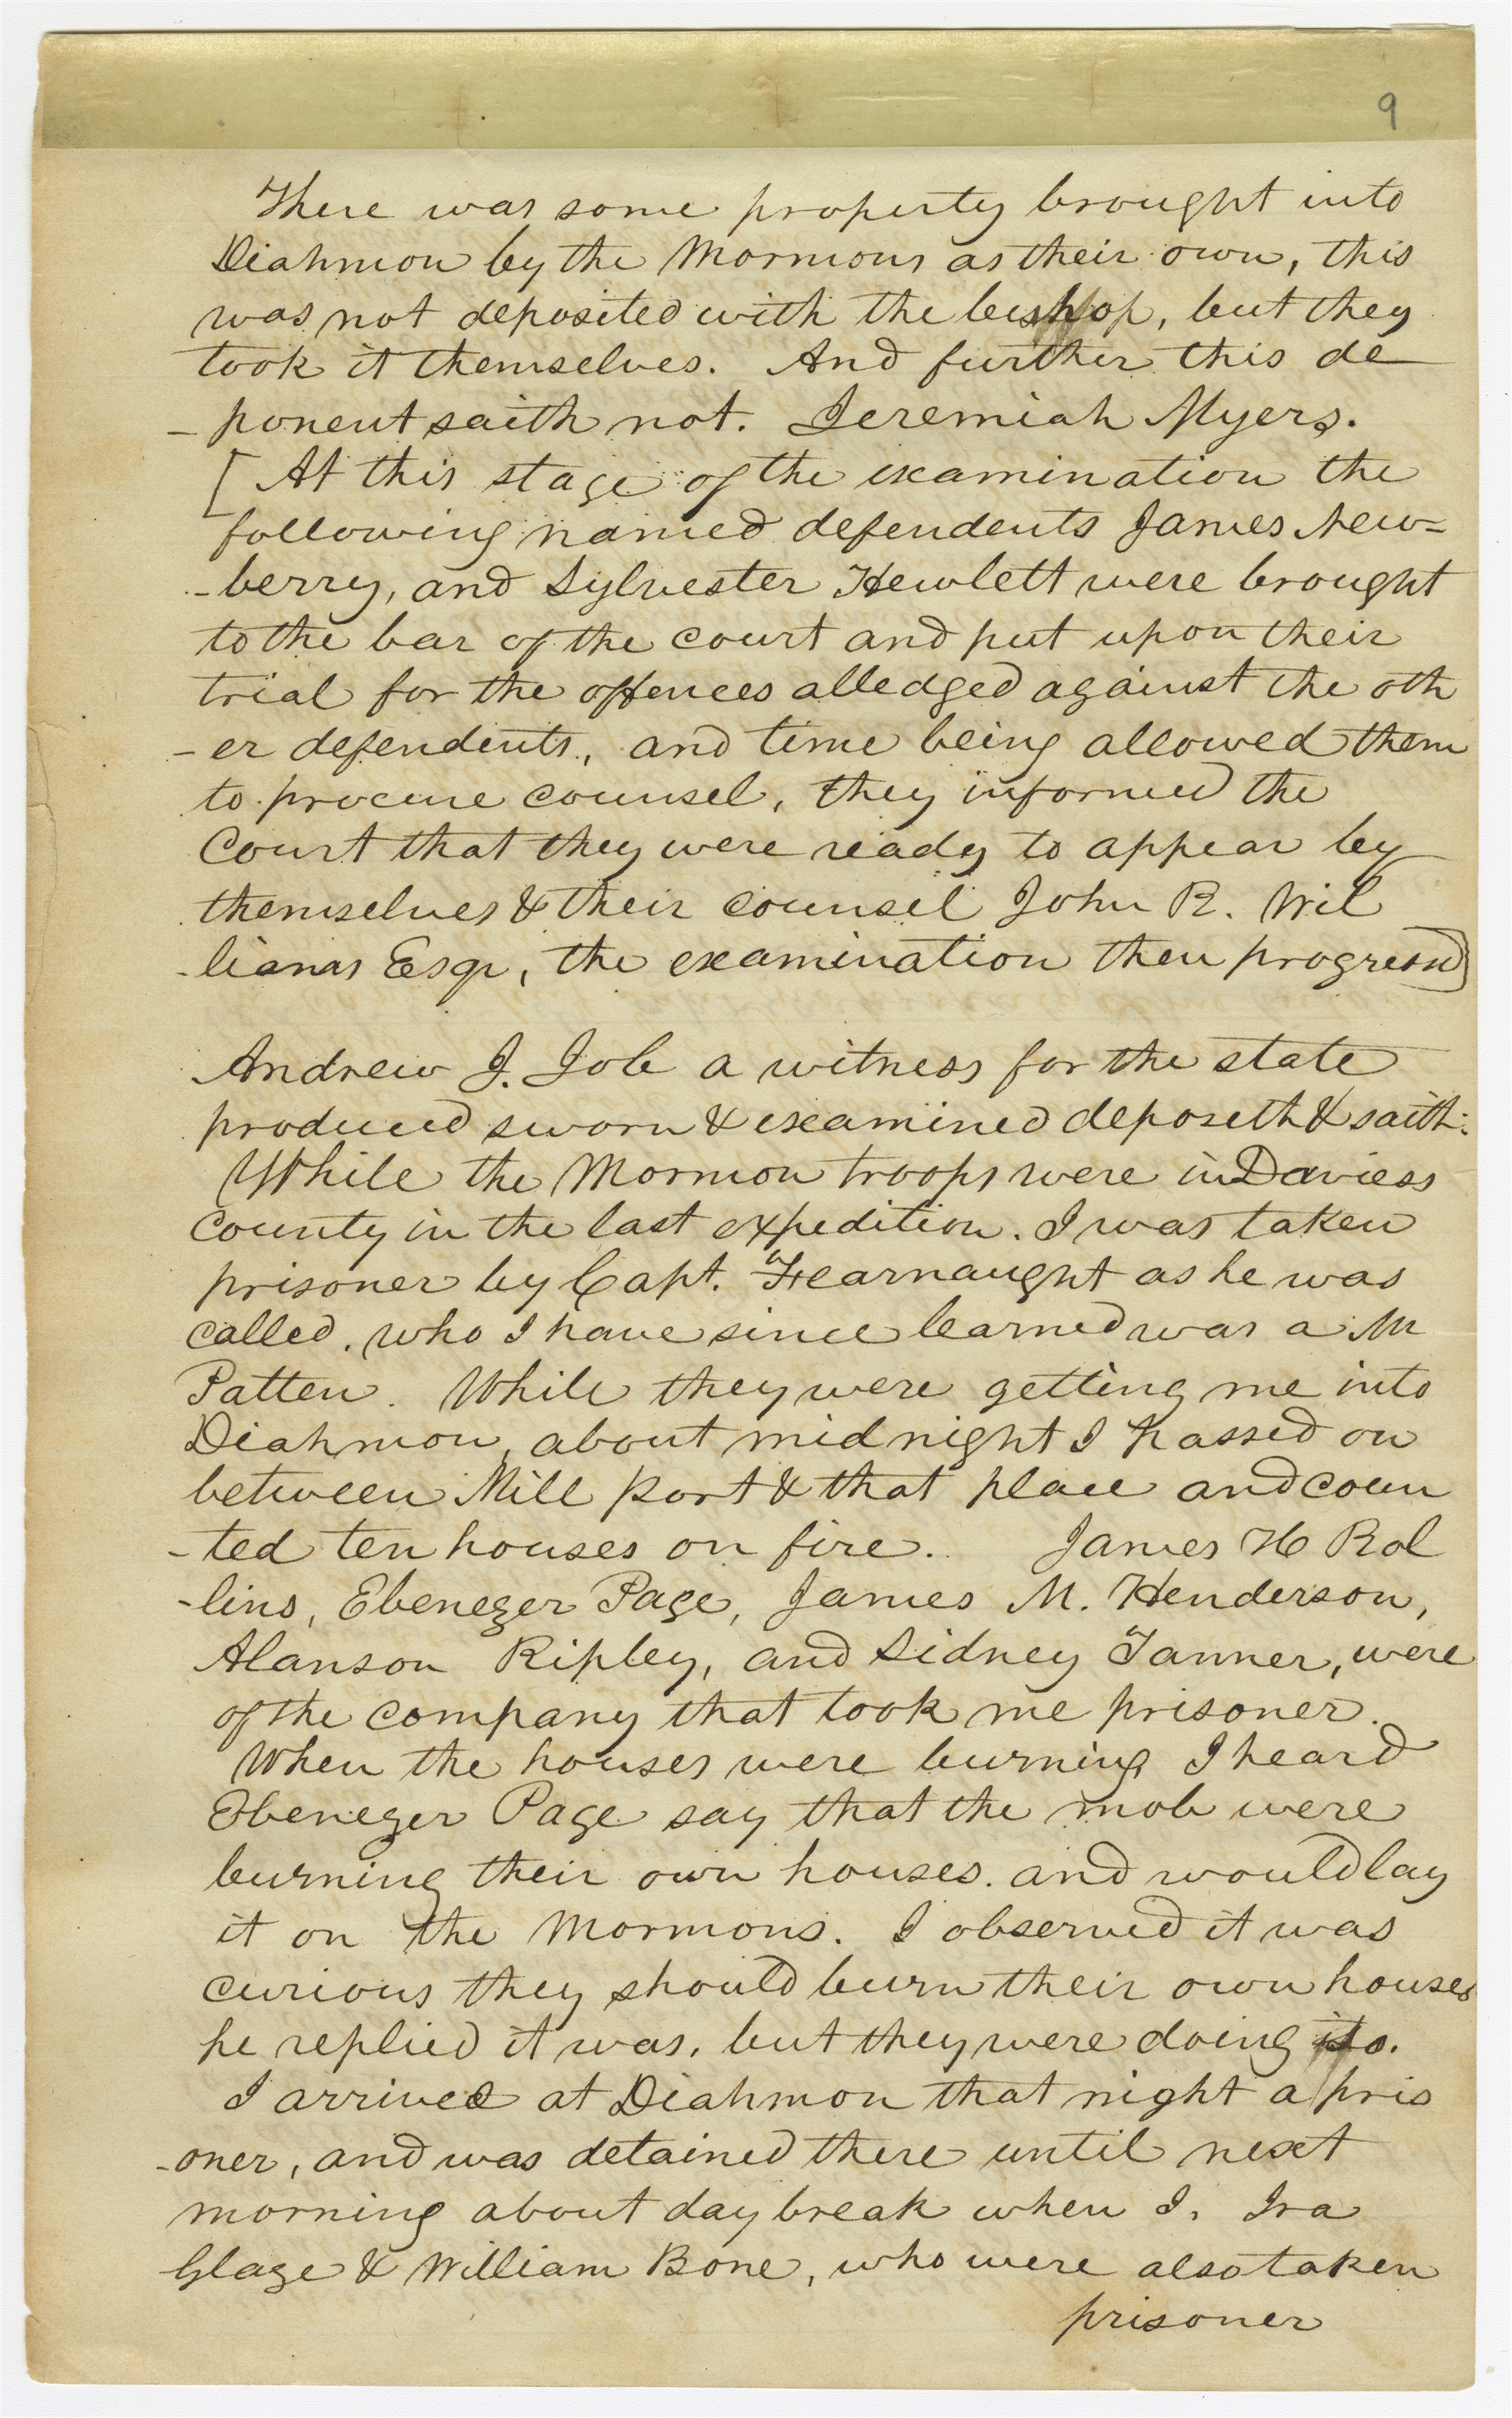 9
There was some property brought into
Diahmon by the Mormons as their own, this
was not deposited with the bishop, but they
took it themselves. And further this de
-ponent saith not. Jeremiah Myers.
[At this stage of the examination the
following named defendents James New=
-berry, and Sylvester Hewlett were brought
to the bar of the court and put upon their
trial for the offences alledged against the oth
-er defendents, and time being allowed them
to procure counsel, they informed the
Court that they were ready to appear by
themselves & their counsel John R. Wil
-liams Esqr, the examination then progressed]
Andrew J. Job a witness for the state
produced sworn & examined deposeth & saith:
While the Mormon troops were in Daviess
County in the last expedition. I was taken
prisoner by Capt. Fearnaught as he was
called, who I have since learned was a Mr
Patten. While they were getting me into
Diahmon, about midnight I passed on
between Mill Port & that place and coun
-ted ten houses on fire. James H Rol
-lins, Ebenezer Page, James M. Henderson,
Alanson Ripley, and Sidney Tanner, were
of the company that took me prisoner.
When the houses were burning I heard
Ebenezer Page say that the mob were
burning their own houses. and would lay
it on the Mormons. I observed it was
curious they should burn their own houses
he replied it was, but they were doing so.
I arrived at Diahmon that night a pris
-oner, and was detained there until next
morning about day break when I, Ira
Glaze & William Bone, who were also taken
prisoner